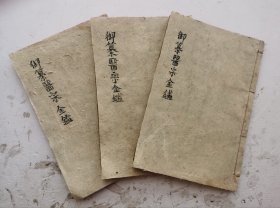 御纂醫宗金鑑
御纂醫宗金鑑
御纂醫宗金鑑